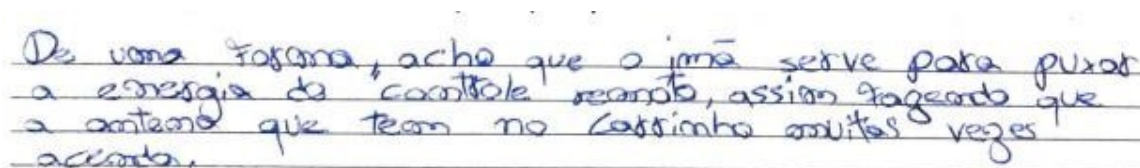 De uma forma, acho que o imã serve para puxar
a energia do controle remoto, assim fazendo que
a antena que tem no carrinho muitas vezes
acenda.